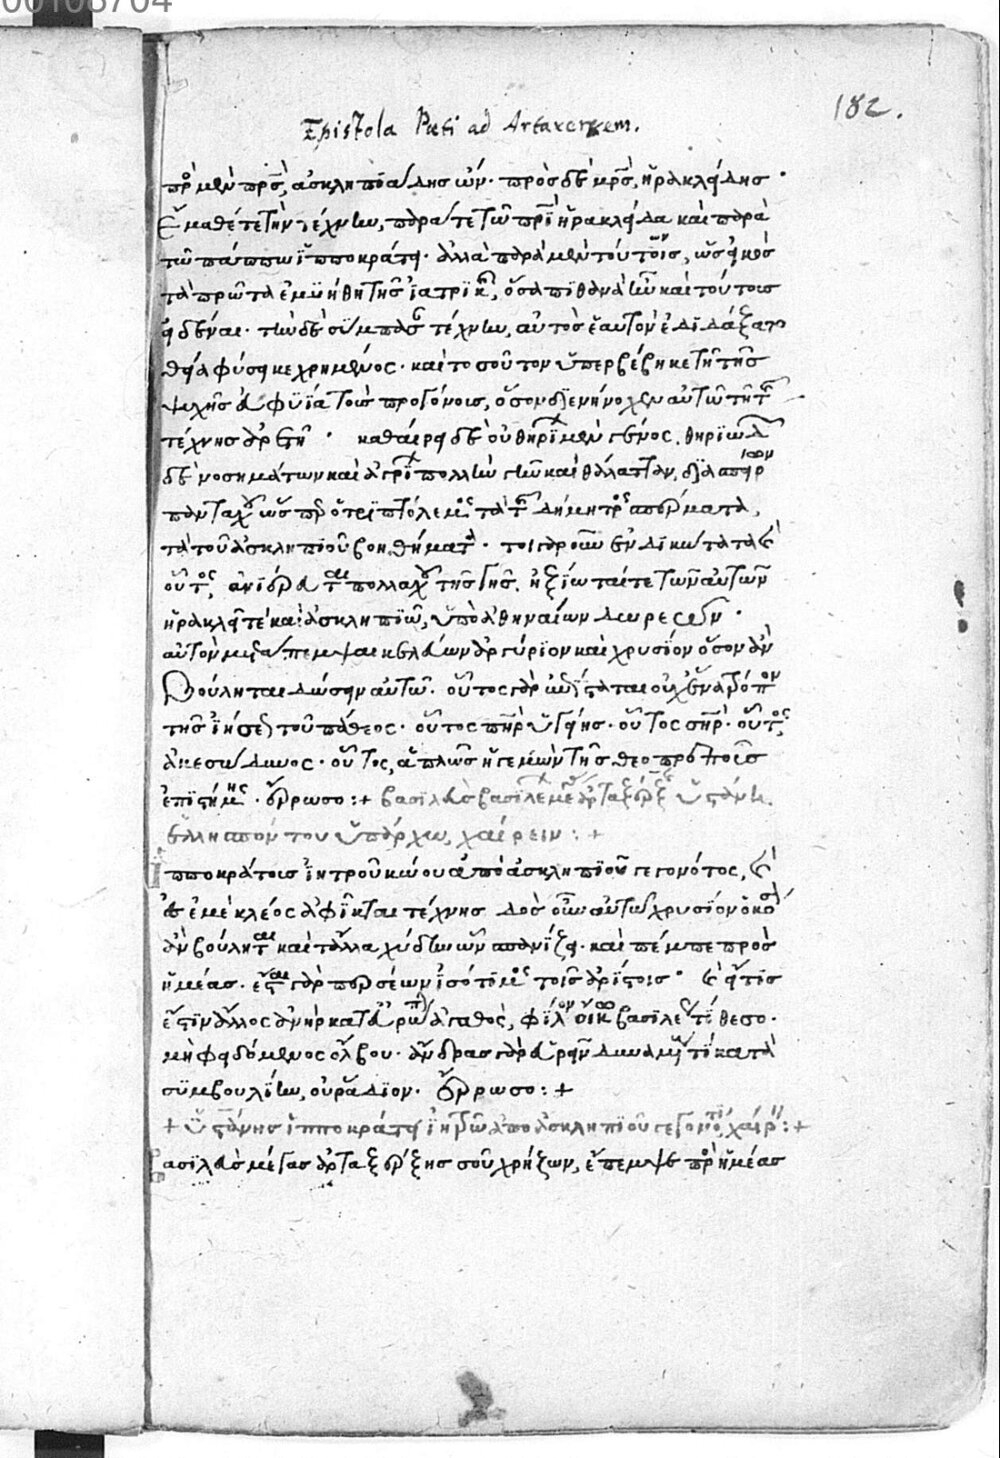 00108704
182.
Epistola Pæti ad Artaxerxem.
πρὸς μὲν πρς, ἀσκληπιάδης ὤν· πρὸς δὲ μρς, ἡρακλείδης·
ἔμαθέ τε τὴν τέχνην, παρά τε τῶ πρὶ ἡρακλείδα καὶ παρὰ
τῶ πάππω ἱπποκράτει· ἀλλὰ παρὰ μὲν τούτοισ, ὡς εἰκὸς
τὰ πρῶτα ἐμυήθη τῆς ἰατρικῆς, ὅσα πιθανὰ ἦν καὶ τούτοις
εἰδέναι· τὴν δὲ σύμπασαν τέχνην, αὐτὸς ἑαυτὸν ἐδιδάξατο
θεία φύσει κεχρημένος· καὶ τοσοῦτον ὑπερβέβηκε τῆ τῆς
ψυχῆς εὐφυΐα τοὺς προγόνους, ὅσον διενήνοχεν αὐτῶ τῆ τῆς
τέχνης ἀρετῆ· καθαίρει δὲ οὐ θηρίων μὲν γένος, θηριωδῶν
δὲ νοσημάτων καὶ ἀγρίων πολλὴν γῆν καὶ θάλατταν, διασπείρων
πανταχοῦ ὥσπερ ὁ τριπτόλεμος τὰ τῆς δήμητρος σπέρματα,
τὰ τοῦ ἀσκληπιοῦ βοηθήματα· τοιγαροῦν ἐνδικώτατα καὶ
οὗτος, ἀνιέρωται πολλαχοῦ τῆς γῆς, ἠξίωταί τε τῶν αὐτῶν
ἡρακλεῖ τε καὶ ἀσκληπιῶ, ὑπὸ ἀθηναίων δωρεῶν·
αὐτὸν μετάπεμψαι κελεύων ἀργύριον καὶ χρυσίον ὅσον ἂν
βούληται δώσειν αὐτῶ· οὗτος γὰρ ἐπίσταται οὐχ ἕνα τρόπον
τῆς ἰήσεως τοῦ πάθεος· οὗτος πηρ ὑγείης· οὗτος σηρ· οὗτος
ἀκεσώδυνος· οὗτος, ἁπλῶς ἡγεμὼν τῆς θεοπρεποῦς
ἐπιστήμης· ἔρρωσο :+ βασιλεὺς βασιλέων μέγας ἀρταξέρξης ὑστάνη
ἑλλησπόντου ὑπάρχω, χαίρειν :+
ἱπποκράτους ἰητροῦ κώου ἀπὸ ἀσκληπιοῦ γεγονότος, καὶ
ἐς ἐμὲ κλέος ἀφῖκται τέχνης δὸς οὖν αὐτῶ χρυσίον ὁκόσον
ἂν βούληται καὶ τἆλλα χύδην ὧν σπανίζει· καὶ πέμπε πρὸς
ἡμέας· ἔσται γὰρ περσέων ἰσότιμος τοῖς ἀρίστοις· καὶ εἴ τις
ἔστιν ἄλλος ἀνὴρ κατ᾽ εὐρώπην ἀγαθὸς, φίλον οἴκω βασιλέως τίθεσο·
μὴ φειδόμενος ὄλβου· ἄνδρας γὰρ εὑρεῖν δυναμένους τι κατὰ
συμβουλίην, οὐ ῥάδιον· ἔρρωσο :+
+ ὑστάνης ἱπποκράτει ἰητρῶ ἀπὸ ἀσκληπιοῦ γεγονότι, χαίρειν :+
βασιλεὺς μέγας ἀρταξέρξης σοῦ χρήζων, ἔπεμψε πρὸς ἡμέας